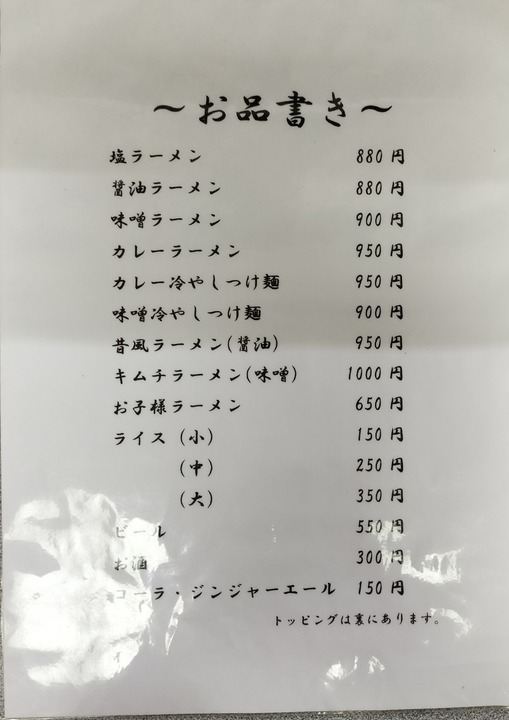 〜お品書き〜
塩ラーメン 880円
醤油ラーメン 880円
味噌ラーメン 900円
カレーラーメン 950円
カレー冷やしつけ麺 950円
味噌冷やしつけ麺 900円
昔風ラーメン(醤油) 950円
キムチラーメン(味噌) 1000円
お子様ラーメン 650円
ライス(小) 150円
(中) 250円
(大) 350円
ビール 550円
お酒 300円
コーラ・ジンジャーエール 150円
トッピングは裏にあります。